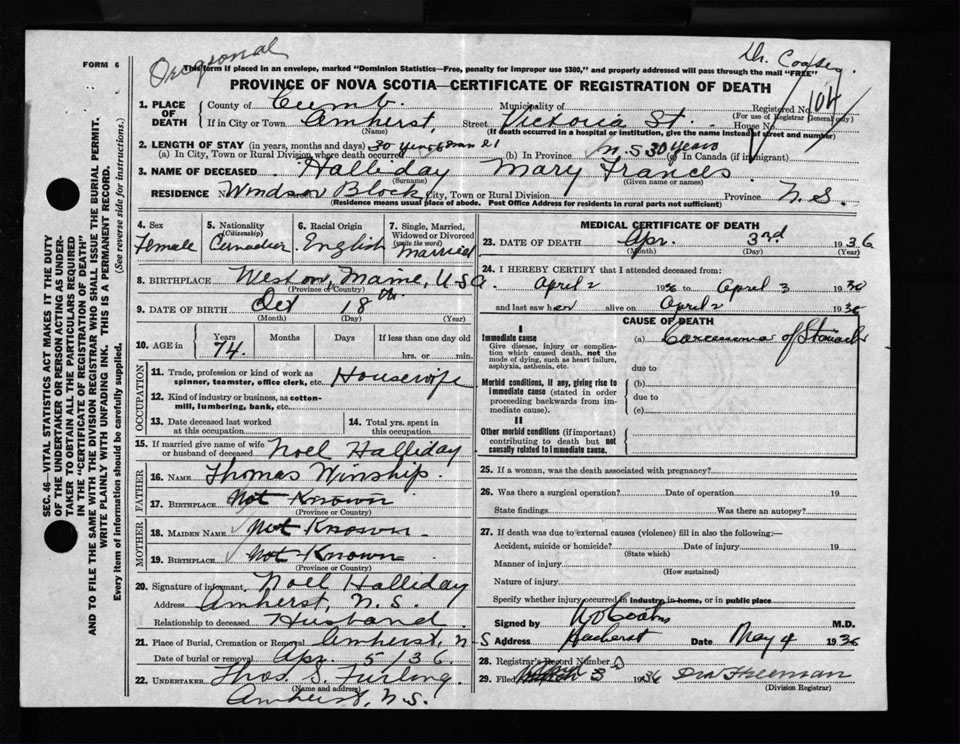 FORM 6
Occasional
Dr. 
This form if placed in an envelope, marked "Dominion Statistics—Free, penalty for improper use $300," and properly addressed will pass through the mail "FREE"
PROVINCE OF NOVA SCOTIA—CERTIFICATE OF REGISTRATION OF DEATH
SEC. 46—VITAL STATISTICS ACT MAKES IT THE DUTY
OF THE UNDERTAKER OR PERSON ACTING AS UNDER-
TAKER TO OBTAIN ALL THE PARTICULARS REQUIRED
IN THE "CERTIFICATE OF REGISTRATION OF DEATH"
AND TO FILE THE SAME WITH THE DIVISION REGISTRAR WHO SHALL ISSUE THE BURIAL PERMIT.
WRITE PLAINLY WITH UNFADING INK. THIS IS A PERMANENT RECORD.
Every item of information should be carefully supplied. (See reverse side for instructions.)
1. PLACE OF DEATH
County of Cumb. Municipality of Registered No. 104
(For use of Registrar General only)
If in City or Town Amherst, Street Victoria St. House No.
(Name) (If death occurred in a hospital or institution, give the name instead of street and number)
2. LENGTH OF STAY (in years, months and days)
(a) In City, Town or Rural Division where death occurred 30 years (b) In Province N.S 30 years (c) In Canada (if immigrant)
3. NAME OF DECEASED Halliday Mary Frances
(Surname) (Given name or names)
RESIDENCE No. Windsor Block City, Town or Rural Division Province N.S.
(Residence means usual place of abode. Post Office Address for residents in rural parts not sufficient)
4. Sex Female
5. Nationality (Citizenship) Canadian
6. Racial Origin English
7. Single, Married, Widowed or Divorced (write the word) Married
8. BIRTHPLACE Weston, Maine, U.S.A.
(Province or Country)
9. DATE OF BIRTH Oct 18th
(Month) (Day) (Year)
10. AGE in Years 74 Months Days If less than one day old
hrs. or min.
OCCUPATION
11. Trade, profession or kind of work as spinner, teamster, office clerk, etc. Housewife
12. Kind of industry or business, as cotton-mill, lumbering, bank, etc.
13. Date deceased last worked at this occupation
14. Total yrs. spent in this occupation
15. If married give name of wife or husband of deceased Noel Halliday
FATHER
16. NAME Thomas Winship
17. BIRTHPLACE Not Known
(Province or Country)
MOTHER
18. MAIDEN NAME Not Known
19. BIRTHPLACE Not Known
(Province or Country)
20. Signature of informant Noel Halliday
Address Amherst, N.S.
Relationship to deceased Husband
21. Place of Burial, Cremation or Removal Amherst, N-S
Date of burial or removal Apr. 5/36.
22. UNDERTAKER Thos. S. Furlong
(Name and address)
Amherst, N.S.
MEDICAL CERTIFICATE OF DEATH
23. DATE OF DEATH Apr. 3rd 1936
(Month) (Day) (Year)
24. I HEREBY CERTIFY that I attended deceased from:
April 2 1936 to April 3 1936
and last saw her alive on April 2 1936
CAUSE OF DEATH
I
Immediate cause
Give disease, injury or complication which caused death, not the mode of dying, such as heart failure, asphyxia, asthenia, etc.
(a) Carcinoma of Stomach
due to
Morbid conditions, if any, giving rise to immediate cause (stated in order proceeding backwards from immediate cause).
(b)
due to
(c)
II
Other morbid conditions (if important) contributing to death but not causally related to immediate cause.
25. If a woman, was the death associated with pregnancy?
26. Was there a surgical operation? Date of operation 19
State findings Was there an autopsy?
27. If death was due to external causes (violence) fill in also the following:—
Accident, suicide or homicide? Date of injury 19
(State which)
Manner of injury
(How sustained)
Nature of injury
Specify whether injury occurred in industry, in home, or in public place
Signed by M.D.
Address Amherst Date May 4 1936
28. Registrar's Record Number
29. Filed 3rd 1936 Freeman
(Division Registrar)